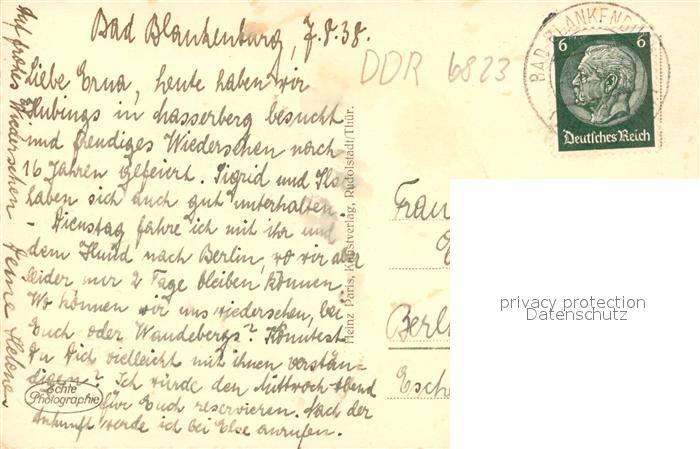 Bad Blankenburg, 7.8.38.
Liebe Erna, heute haben wir
Hubings in Wasserberg besucht
und freudiges Wiedersehen nach
16 Jahren gefeiert. Sigrid und Ilse
haben sich auch gut unterhalten.
- Dienstag fahre ich mit ihr und
dem Hund nach Berlin, wo wir aber
leider nur 2 Tage bleiben können.
Wo können wir uns wiedersehen, bei
Euch oder Wandebergs? Könntest
Du Dich vielleicht mit ihnen verstän-
digen? Ich würde den Mittwoch abend
für Euch reservieren. Nach der
Ankunft werde ich bei Else anrufen.
Auf frohes Wiedersehen Deine Helene
Echte
Photographie
Heinz Paris, Kunstverlag, Rudolstadt/Thür.
DDR 6823
BAD BLANKENBU
6 6
Deutsches Reich
Frau
Berl
Esch
privacy protection
Datenschutz